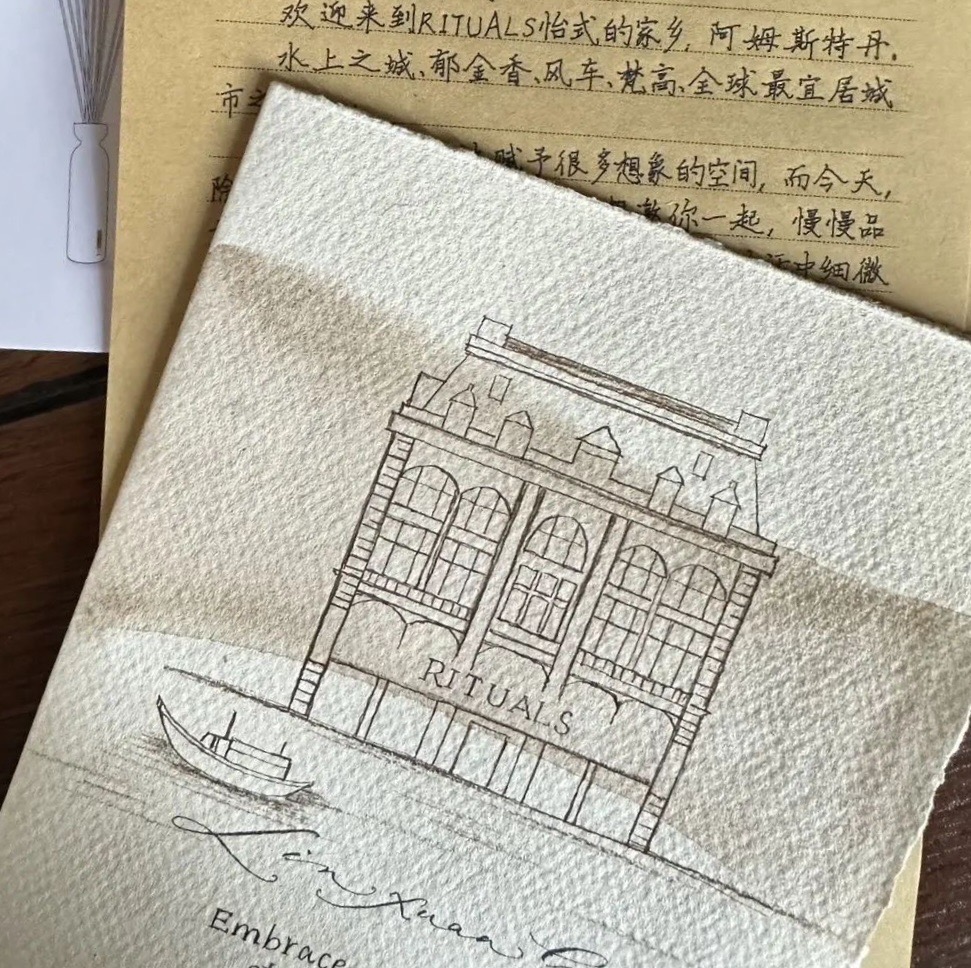 欢迎来到RITUALS怡式的家乡，阿姆斯特丹。
水上之城、郁金香、风车、梵高、全球最宜居城
市之
赋予很多想象的空间，而今天，
除
你一起，慢慢品
中细微
RITUALS
Xin Xuan
Embrace